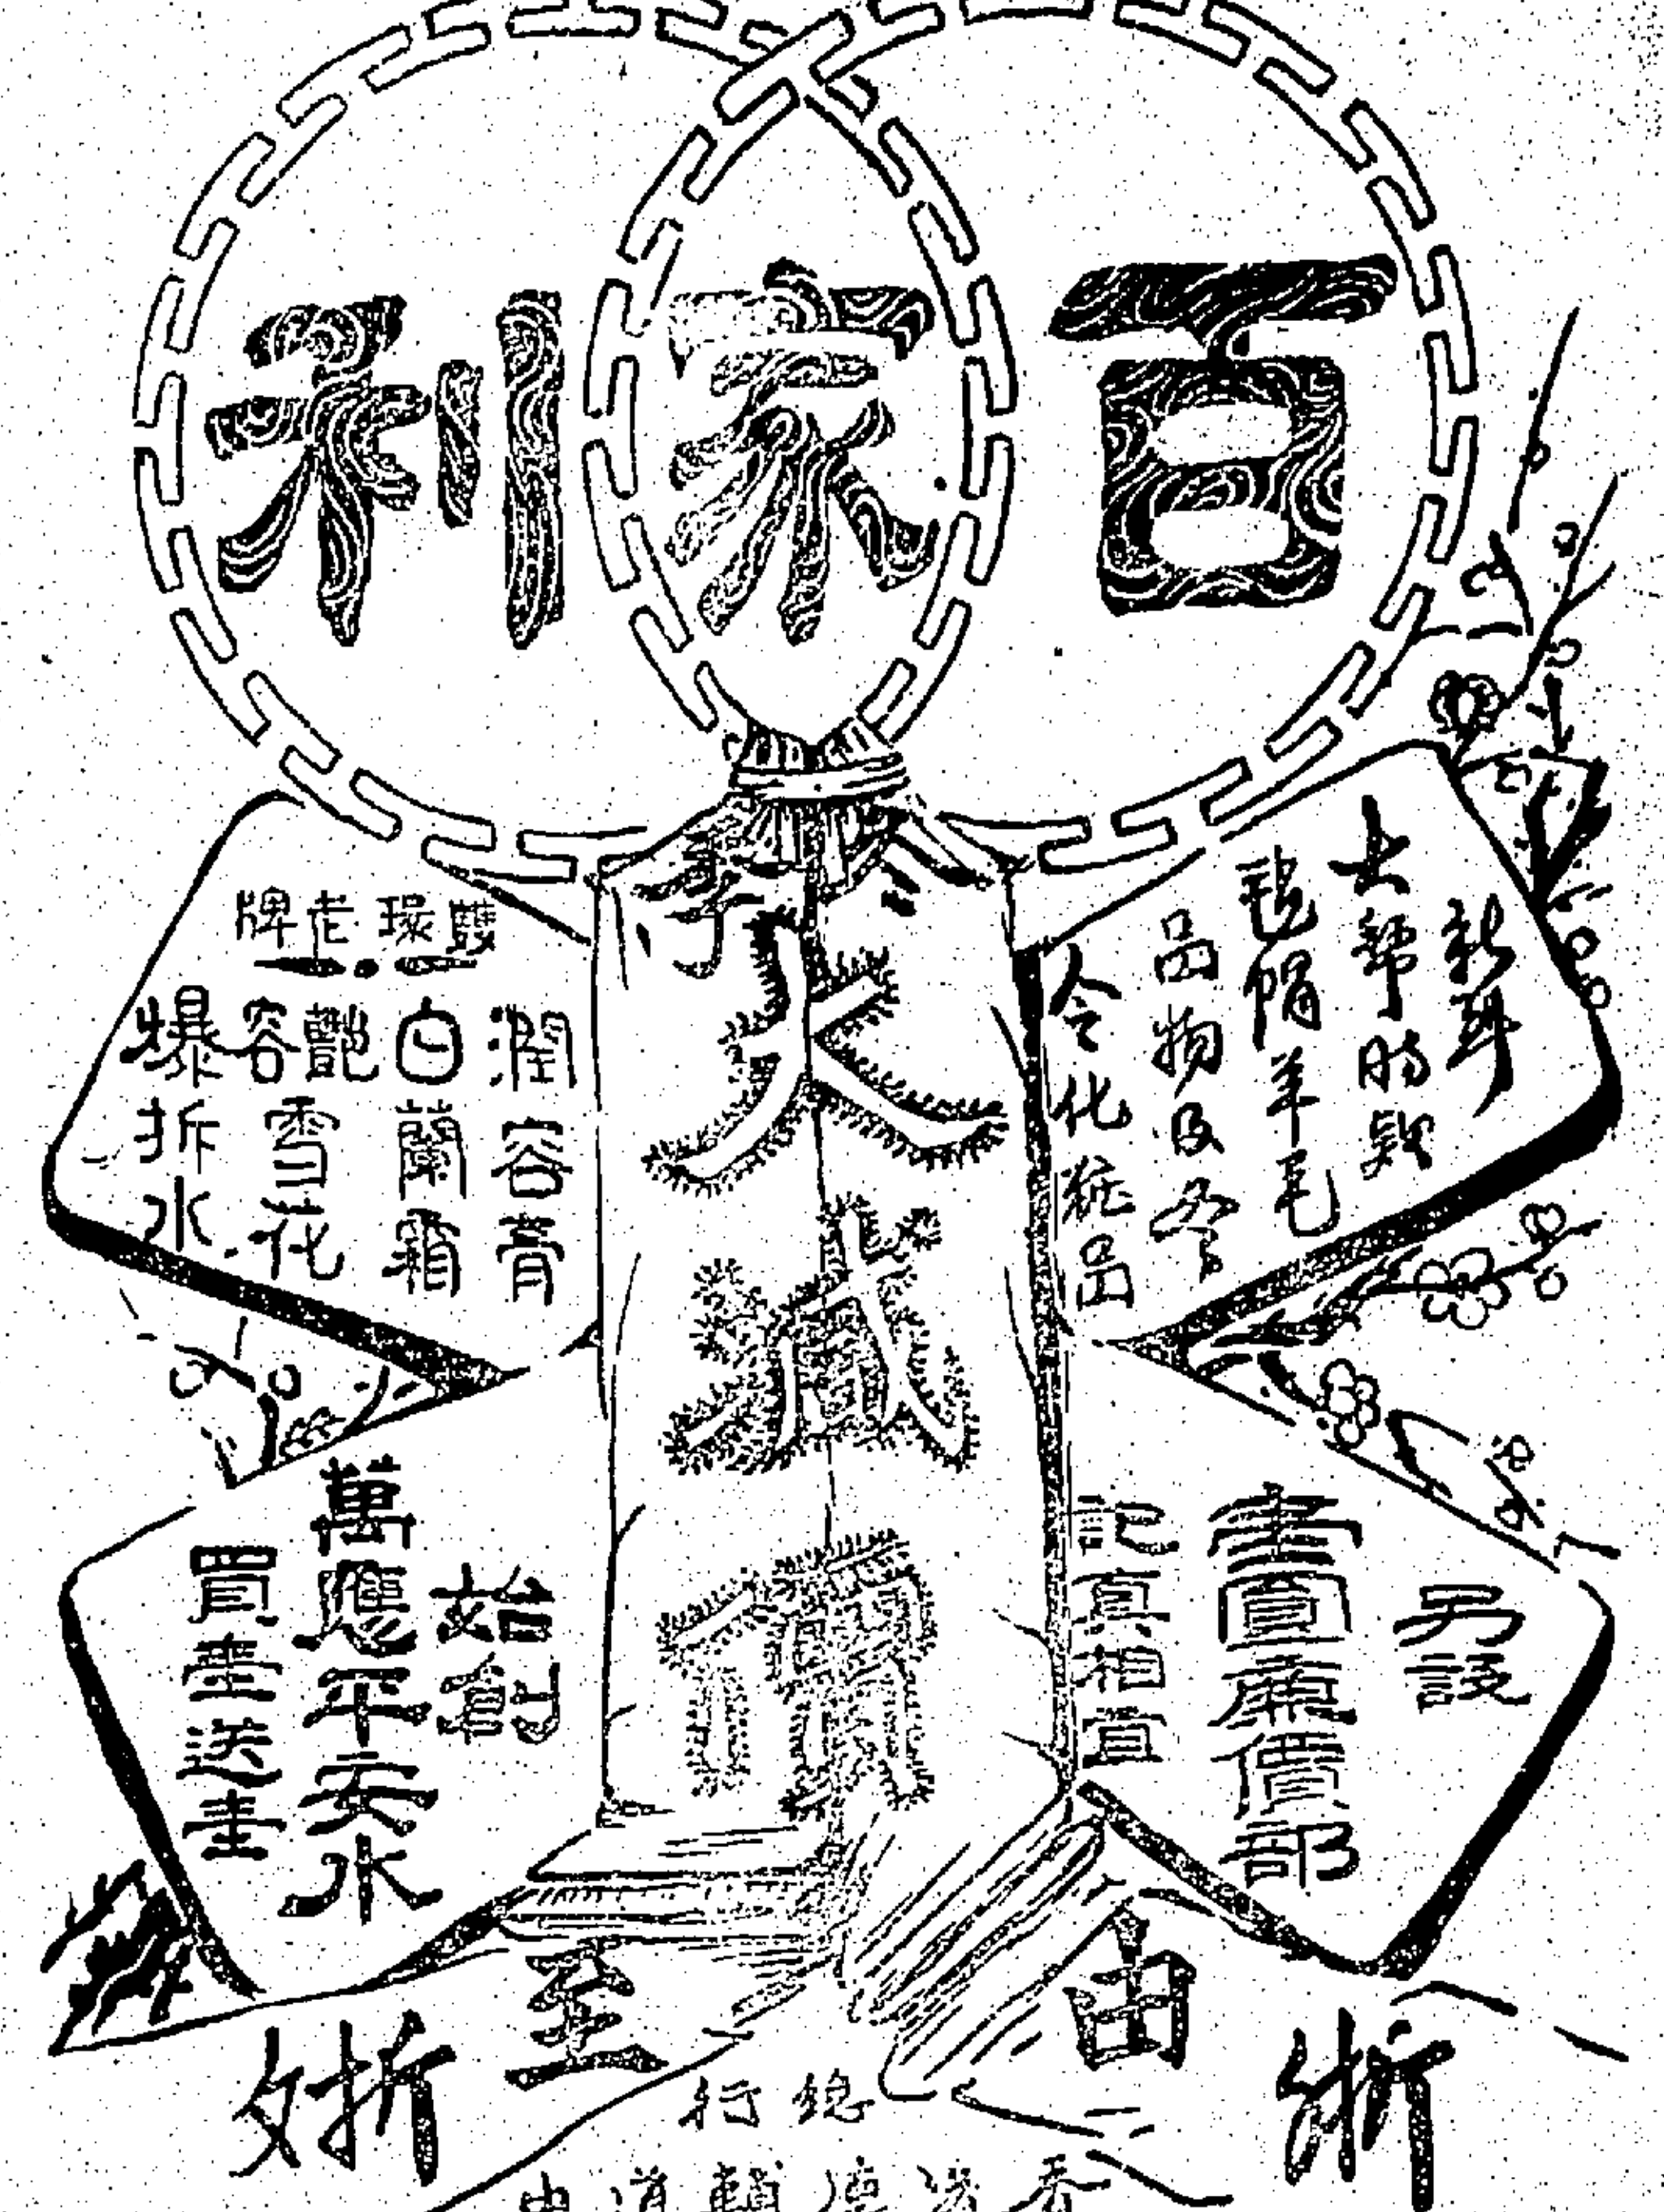 百家利
冬季
大減價
新到
大幫時款
氈帽羊毛
品物及冬
令化粧品
雙環老牌
潤容膏
白蘭霜
艷容雪花
爆拆水
另設
賣廉價部
記真相宜
始創
萬應平安水
買壹送壹
由
至
折
折
總行
香港德輔道中